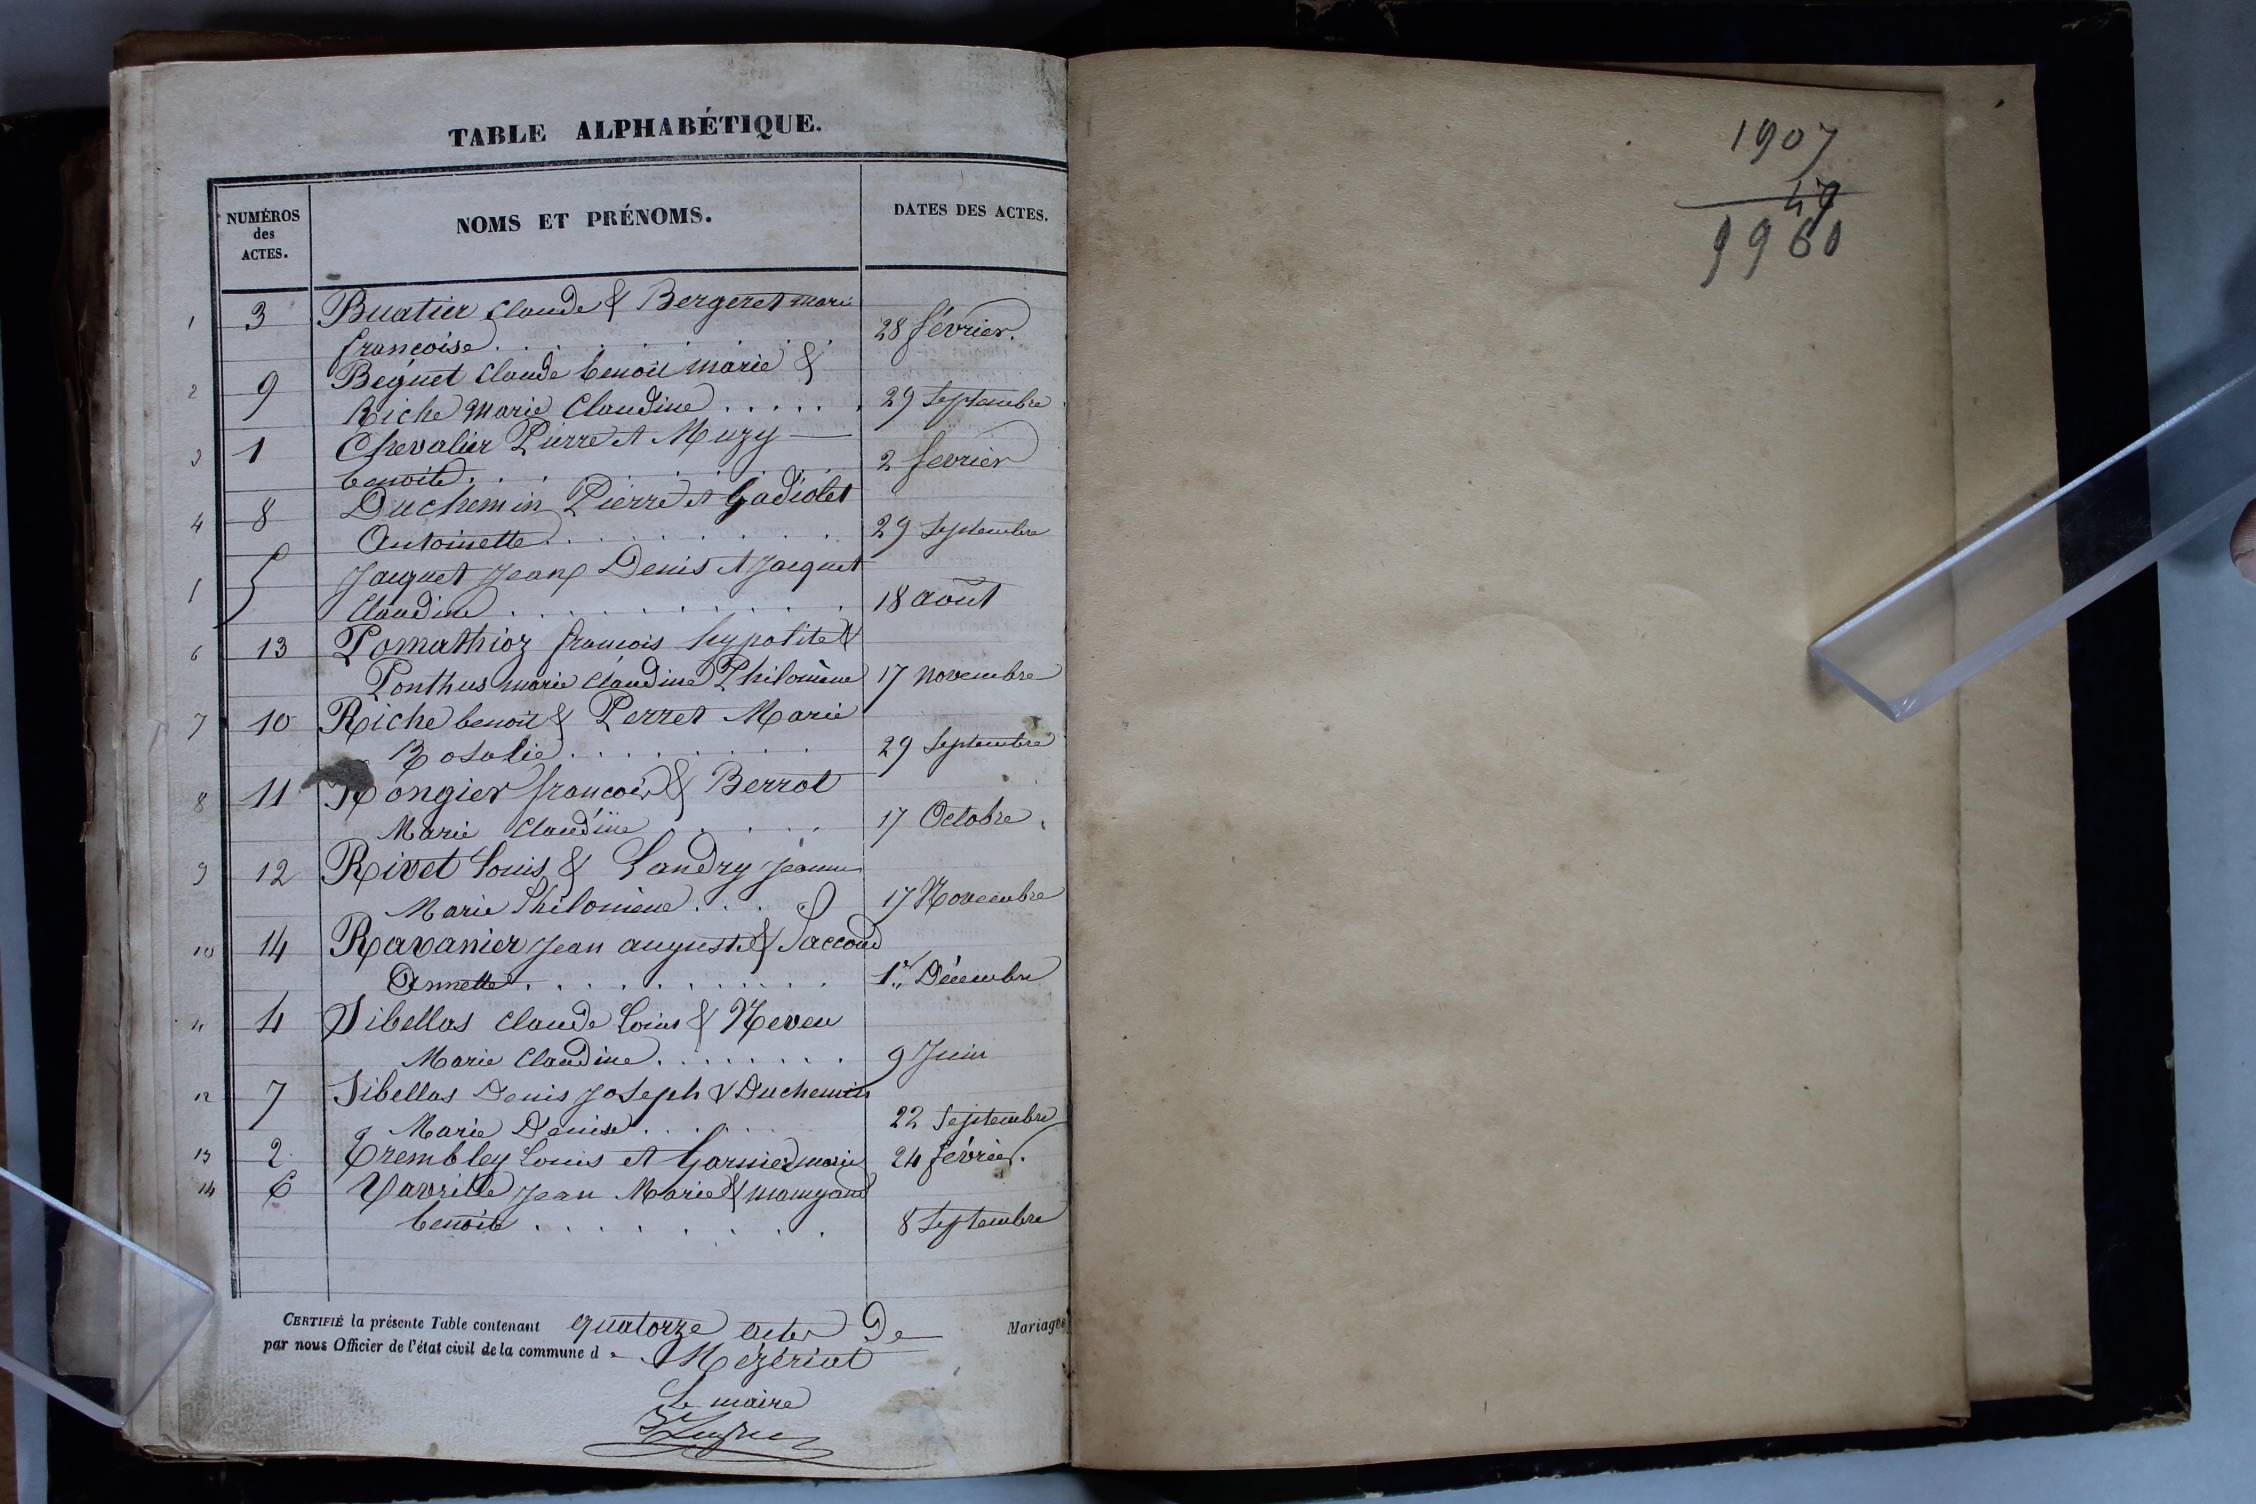 TABLE ALPHABÉTIQUE.
NUMÉROS des ACTES. NOMS ET PRÉNOMS. DATES DES ACTES.
1 3 Buatier Claude & Bergeret mari
françoise 28 février.
2 9 Beguet Claude benoit marie &
Riche Marie Claudine 29 Septembre
3 1 Chevalier Pierre et Muzy
benoite 2 fevrier
4 8 Duchemin Pierre et Gadiolet
Antoinette 29 Septembre
5 Jacquet Jean Denis et Jacquet
Claudine 18 août
6 13 Pomathioz francois hypolite &
Ponthus marie Claudine Philomène 17 novembre
7 10 Riche benoit & Perret Marie
Rosalie 29 Septembre
8 11 Rongier francois & Berrot
Marie Claudine 17 Octobre
9 12 Rivet Louis & Landry Jeanne
Marie Philomène 17 Novembre
10 14 Ravanier Jean auguste & Saccoud
Annette 1er Décembre
11 4 Sibellas Claude Louis & Neveu
Marie Claudine 9 Juin
12 7 Sibellas Denis Joseph & Duchemin
Marie Denise 22 Septembre
13 2 Trembley Louis et Garnier marie 24 février.
14 6 Vavrille Jean Marie &
benoite 8 Septembre
CERTIFIÉ la présente Table contenant quatorze actes De Mariages
par nous Officier de l'état civil de la commune d e Mézériat
Le maire
1907
47
9960